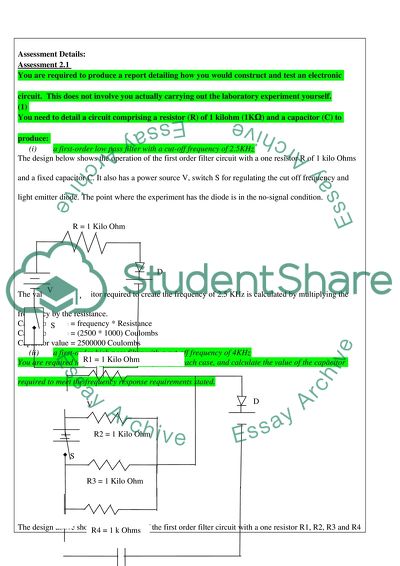 Assessment Details:
Assessment 2.1
You are required to produce a report detailing how you would construct and test an electronic
circuit. This does not involve you actually carrying out the laboratory experiment yourself.
(1)
You need to detail a circuit comprising a resistor (R) of 1 kilohm (1KΩ) and a capacitor (C) to
produce:
(i) a first-order low pass filter with a cut-off frequency of 2.5KHz
The design below shows the operation of the first order filter circuit with a one resistor R of 1 kilo Ohms
and a fixed capacitor C. It also has a power source V, switch S for regulating the cut off frequency and
light emitter diode. The point where the experiment has the diode is in the no-signal condition.
R = 1 Kilo Ohm
D
V
S
StudentShare
The itor required to create the frequency of 2.5 KHz is calculated by multiplying the
by the resistance.
= frequency * Resistance
= (2500 * 1000) Coulombs
value = 2500000 Coulombs
(ii) a frequency of 4KHz
R1 = 1 Kilo Ohm
You are required each case, and calculate the value of the capacitor
required to meet the frequency response requirements stated.
D
R2 = 1 Kilo Ohm
S
R3 = 1 Kilo Ohm
The design the first order filter circuit with a one resistor R1, R2, R3 and R4
R4 = 1 k Ohms
Essay Archive
Essay Archive
Essay Archive
Essay Archive